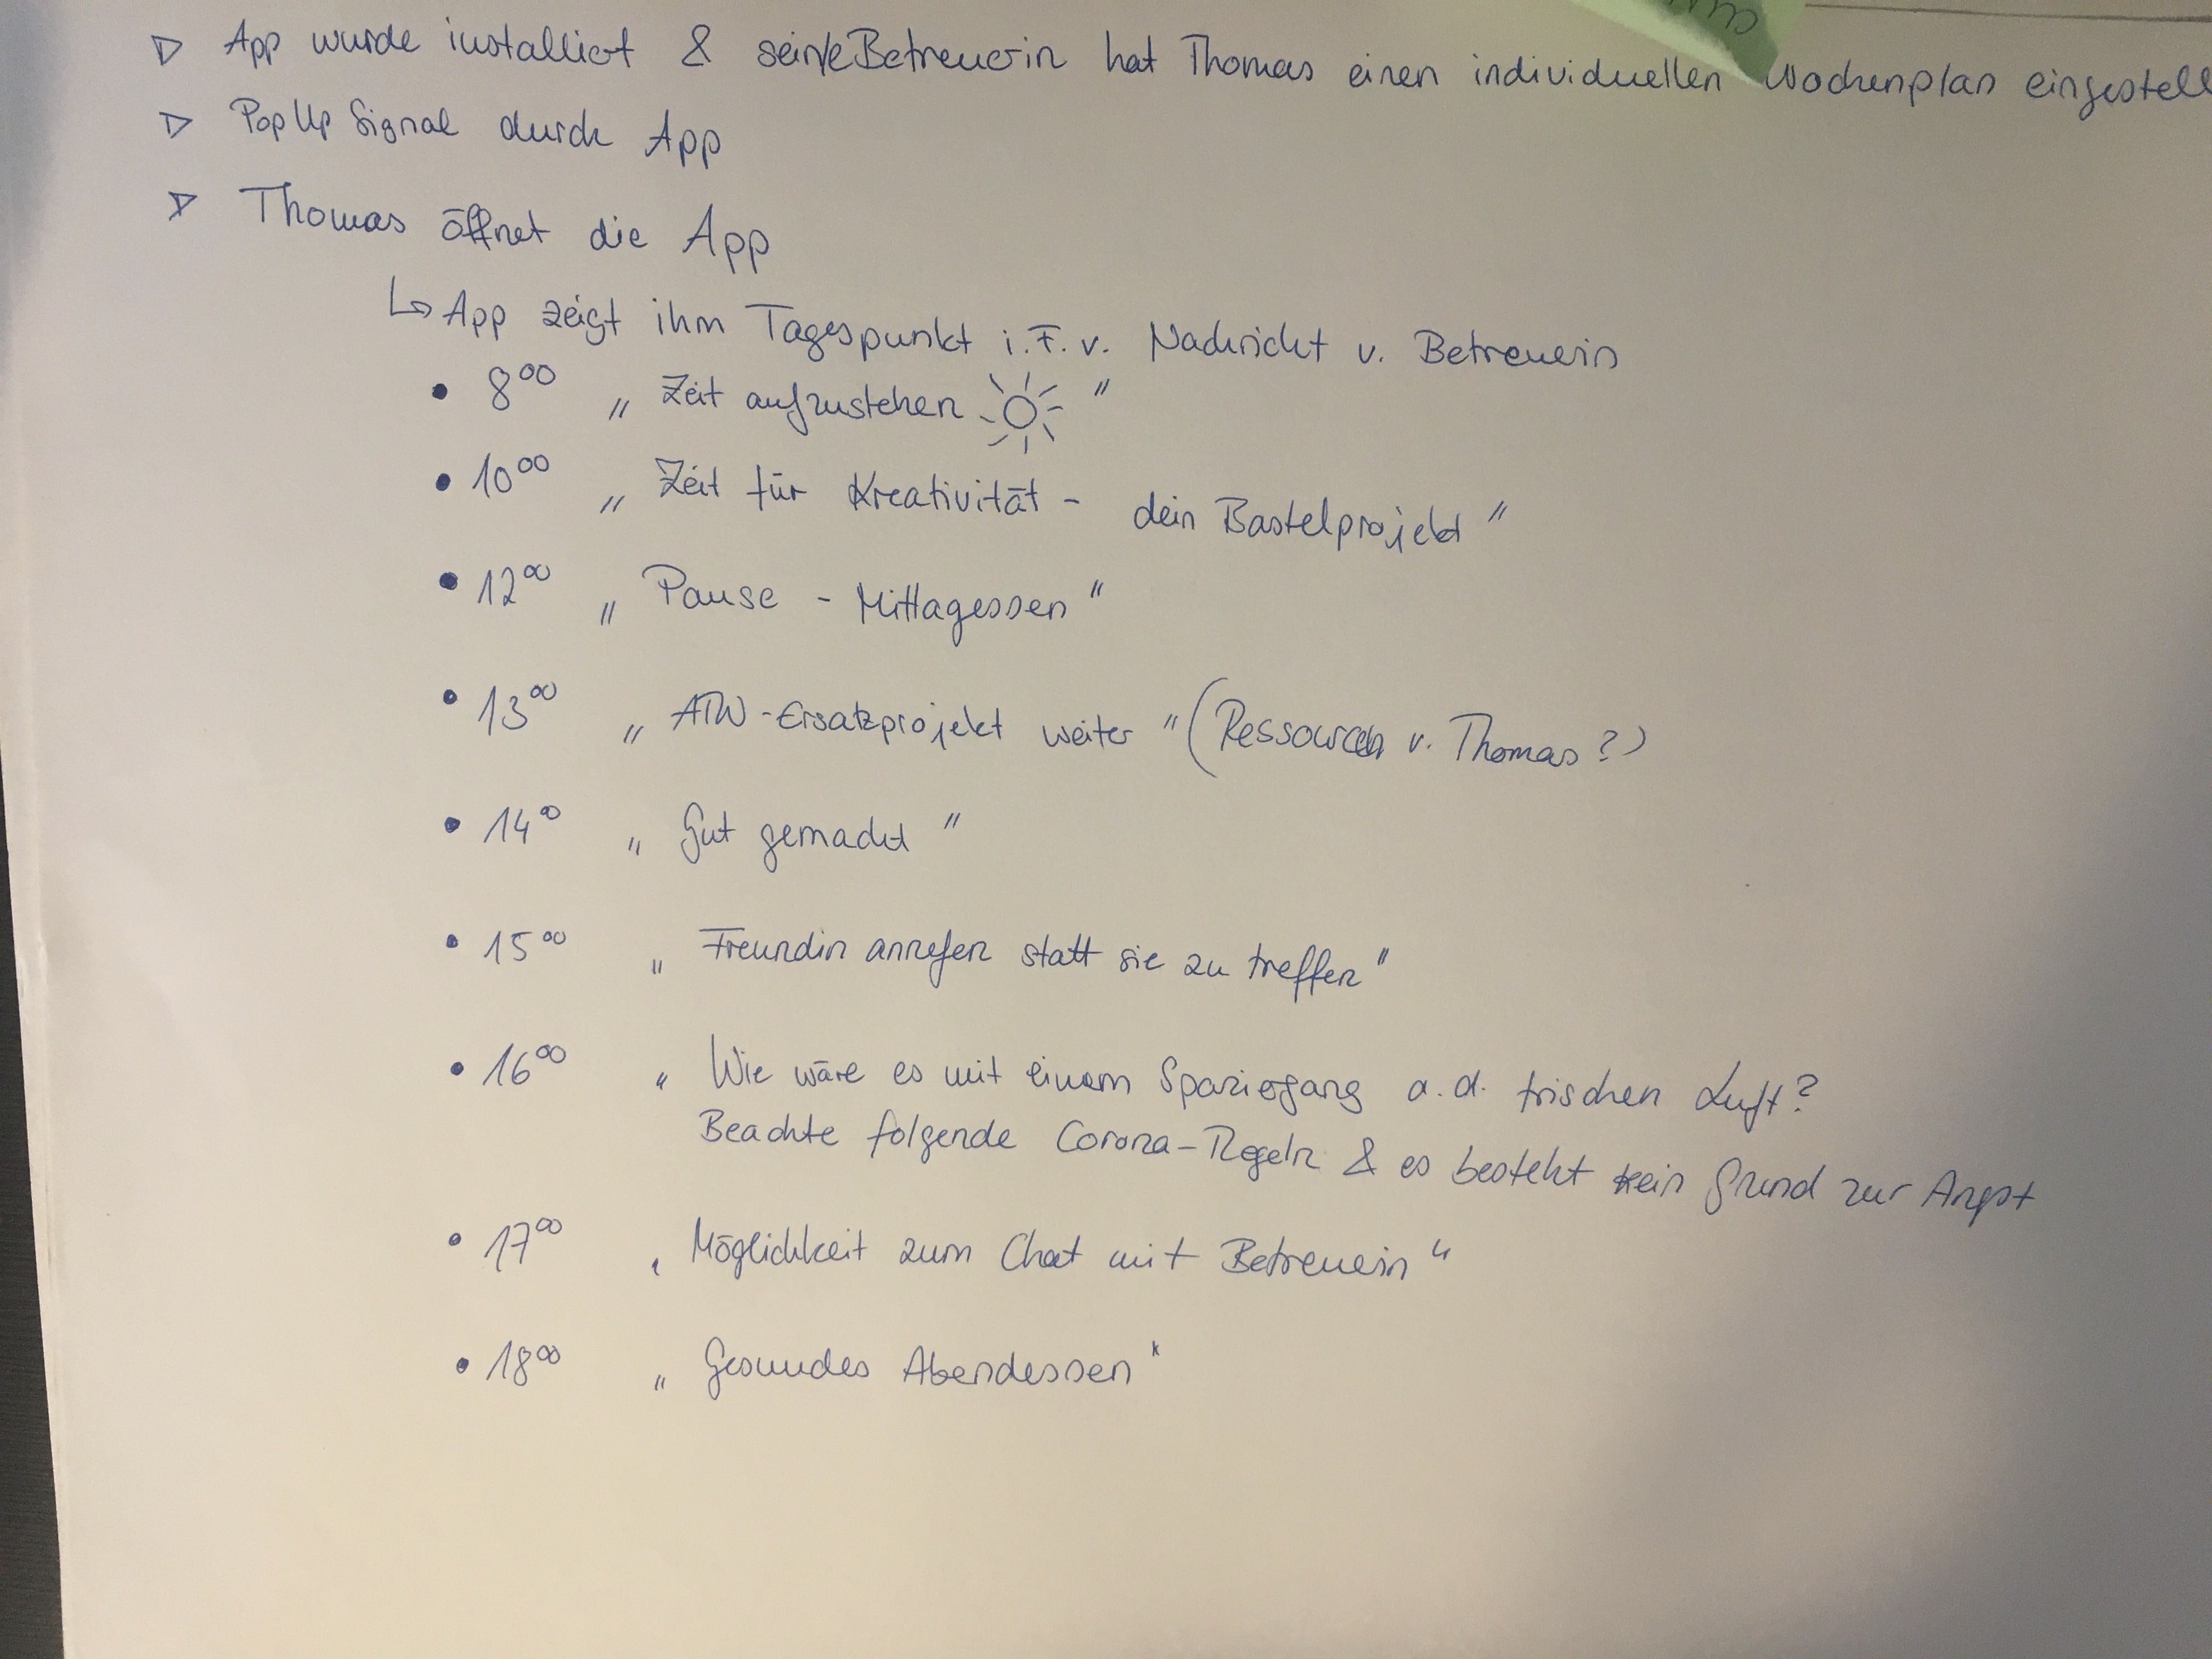 ▷ App wurde installiert & seine Betreuerin hat Thomas einen individuellen Wochenplan eingestell
▷ PopUp Signal durch App
▷ Thomas öffnet die App
↳ App zeigt ihm Tagespunkt i.F.v. Nachricht v. Betreuerin
• 8⁰⁰ „Zeit aufzustehen ☀"
• 10⁰⁰ „Zeit für Kreativität - dein Bastelprojekt"
• 12⁰⁰ „Pause - Mittagessen"
• 13⁰⁰ „ATW-Ersatzprojekt weiter" (Ressourcen v. Thomas?)
• 14⁰ „Gut gemacht"
• 15⁰⁰ „Freundin anrufen statt sie zu treffen"
• 16⁰⁰ „Wie wäre es mit einem Spaziergang a.d. frischen Luft?
Beachte folgende Corona-Regeln & es besteht kein Grund zur Angst
• 17⁰⁰ „Möglichkeit zum Chat mit Betreuerin"
• 18⁰⁰ „Gesundes Abendessen"